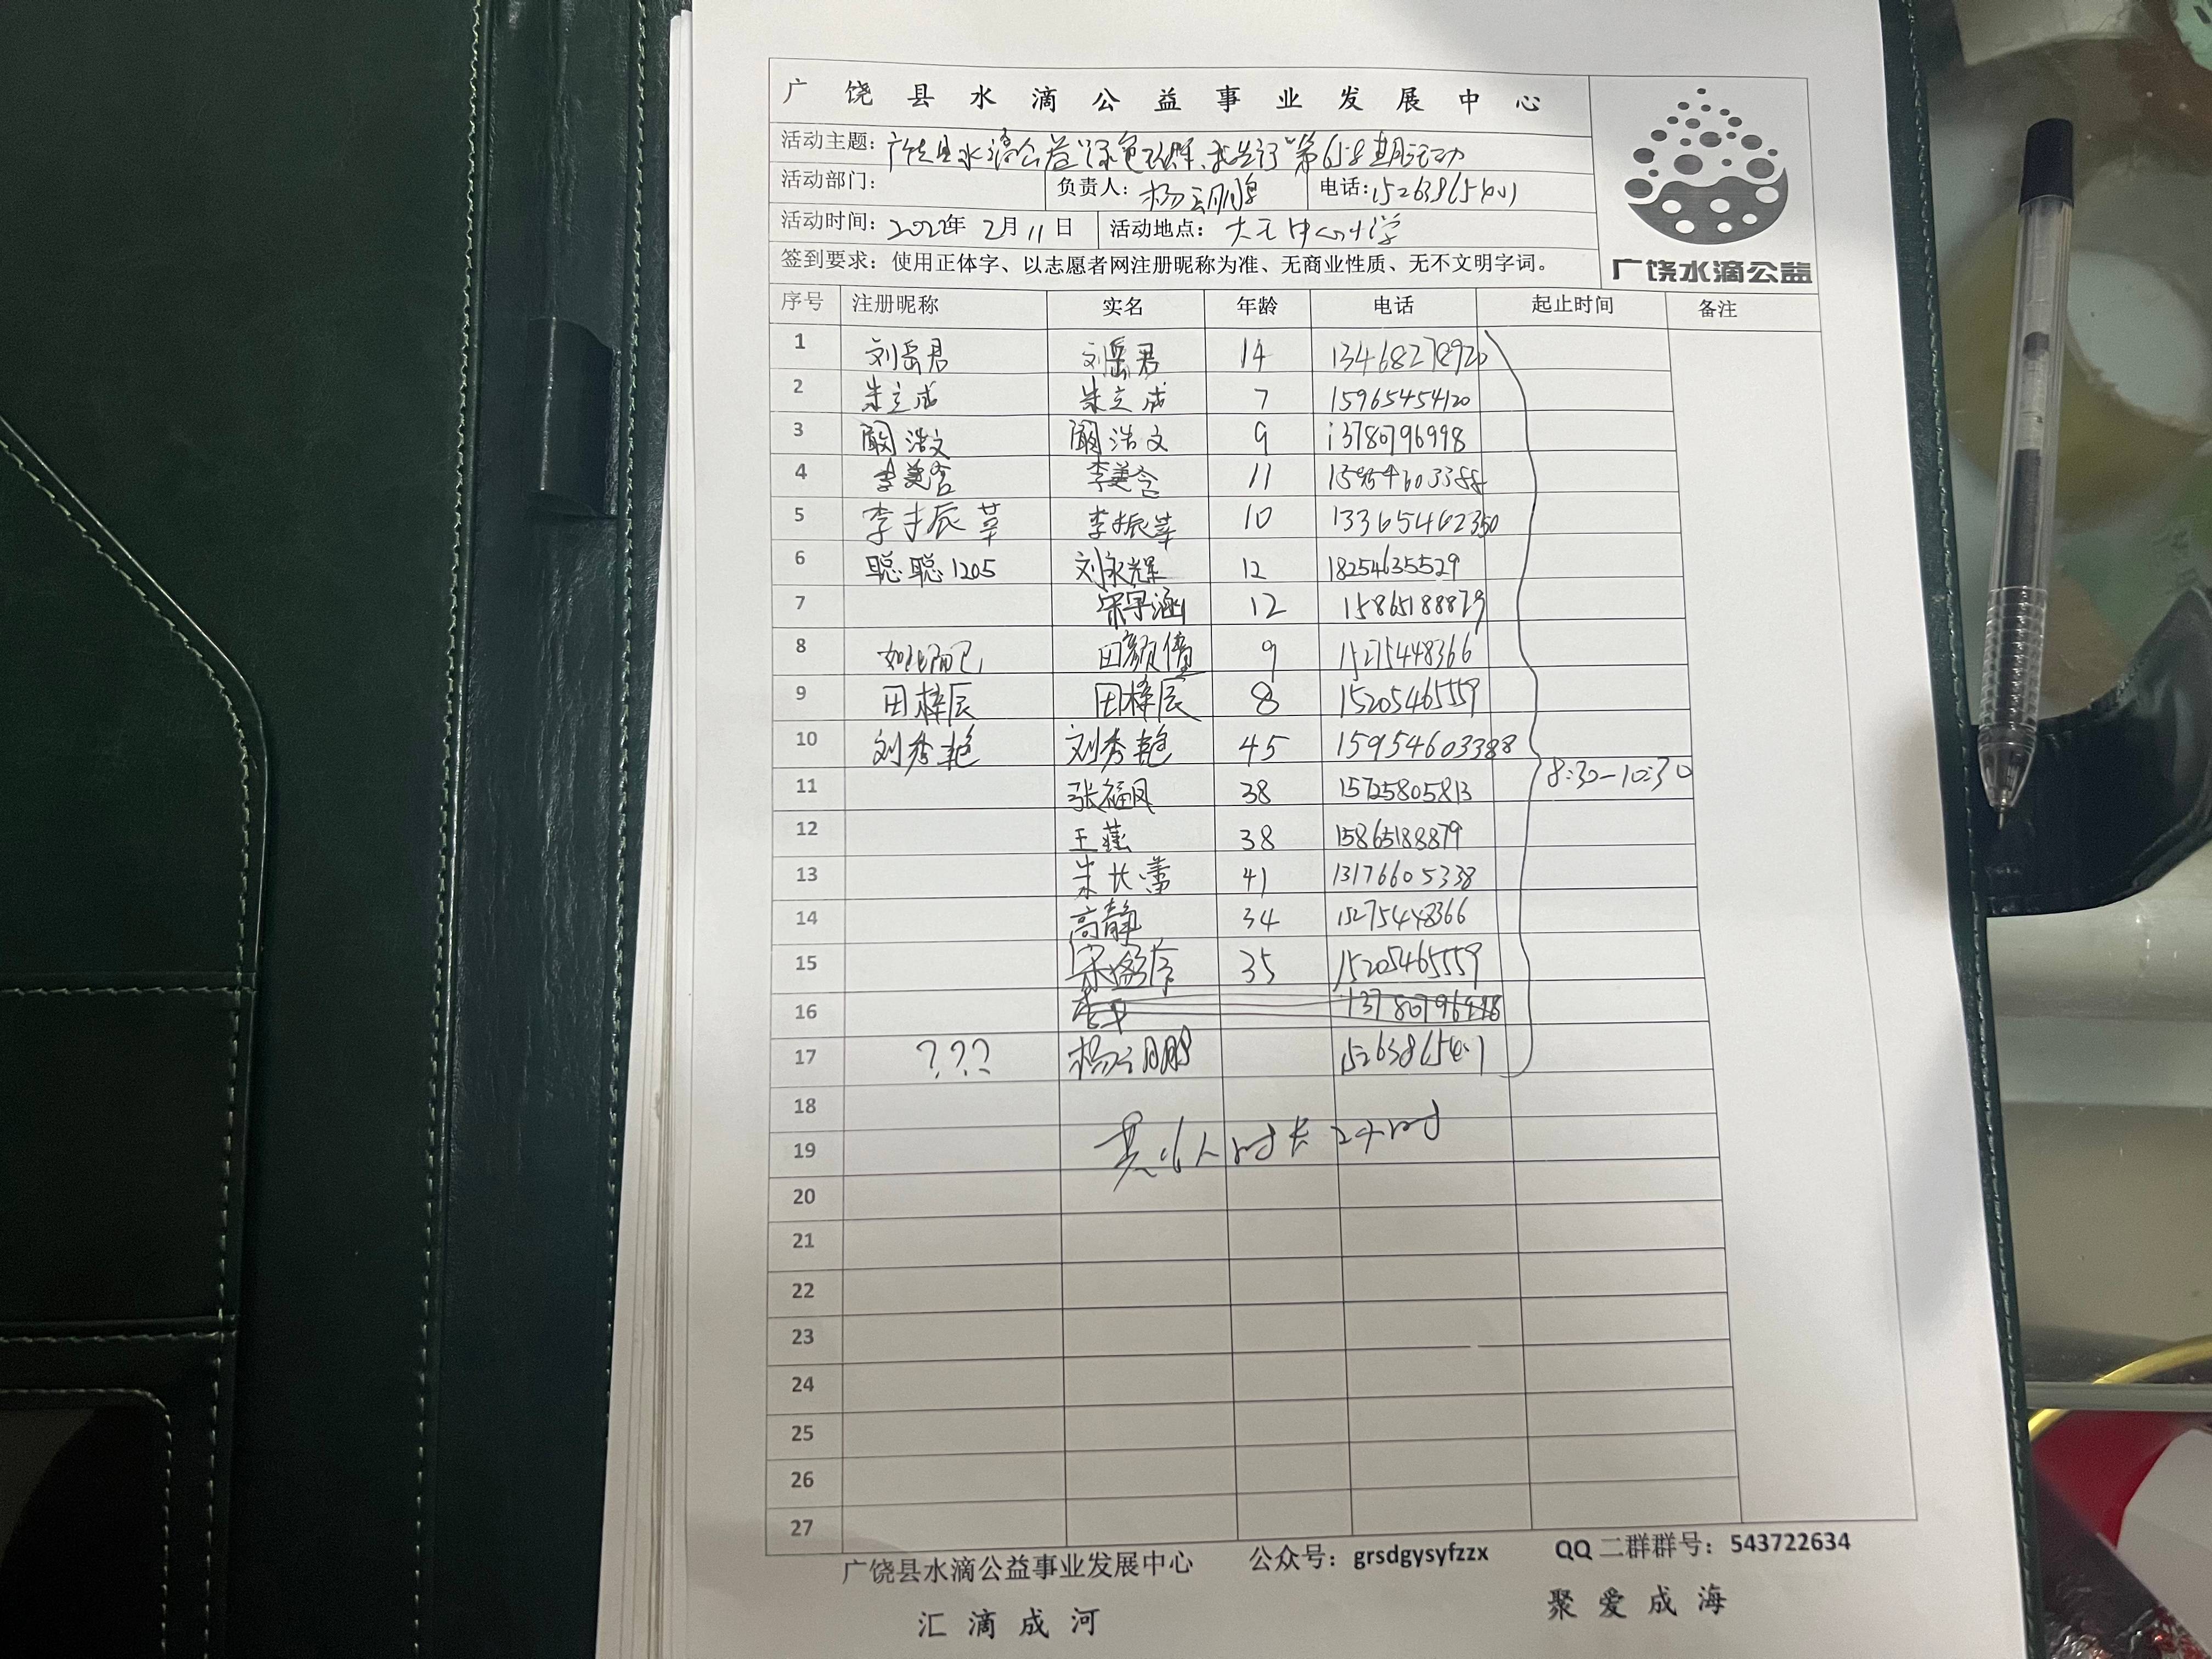 广饶县水滴公益事业发展中心
活动主题：广饶县水滴公益“绿色环保、我先行”第658期活动
活动部门： 负责人：杨云鹏 电话：
活动时间：2022年2月11日 活动地点：大王中心小学
签到要求：使用正体字、以志愿者网注册昵称为准、无商业性质、无不文明字词。
广饶水滴公益
序号 注册昵称 实名 年龄 电话 起止时间 备注
1 刘岳君 刘岳君 14 13468278920
2 朱立成 朱立成 7 15965454120
3 阚浩文 阚浩文 9 13780796998
4 李美含 李美含 11 15954603388
5 李振莘 李振莘 10 13365462350
6 聪聪1205 刘永辉 12 18254635529
7 宋宇涵 12 15865188879
8 如此而已 田颜僮 9 15275448366
9 田梓辰 田梓辰 8 15205465559
10 刘秀艳 刘秀艳 45 15954603388
11 张福凤 38 15725805813
8:30-10:30
12 王燕 38 15865188879
13 朱长蕾 41 13176605338
14 高静 34 15275448366
15 35 15205465559
16 13780796998
17 ??? 杨云鹏
18
共16人时长2小时
19
20
21
22
23
24
25
26
27
广饶县水滴公益事业发展中心 公众号：grsdgysyfzzx QQ二群群号：543722634
汇滴成河 聚爱成海